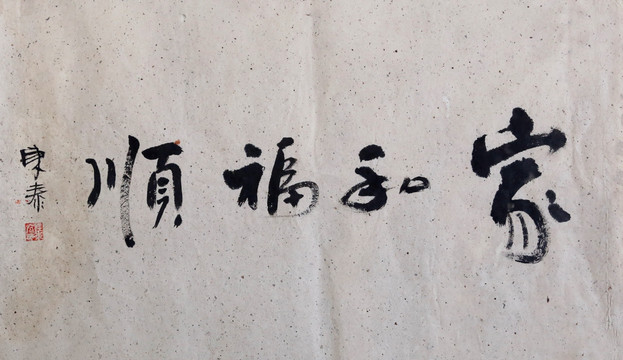 家和福順
東泰